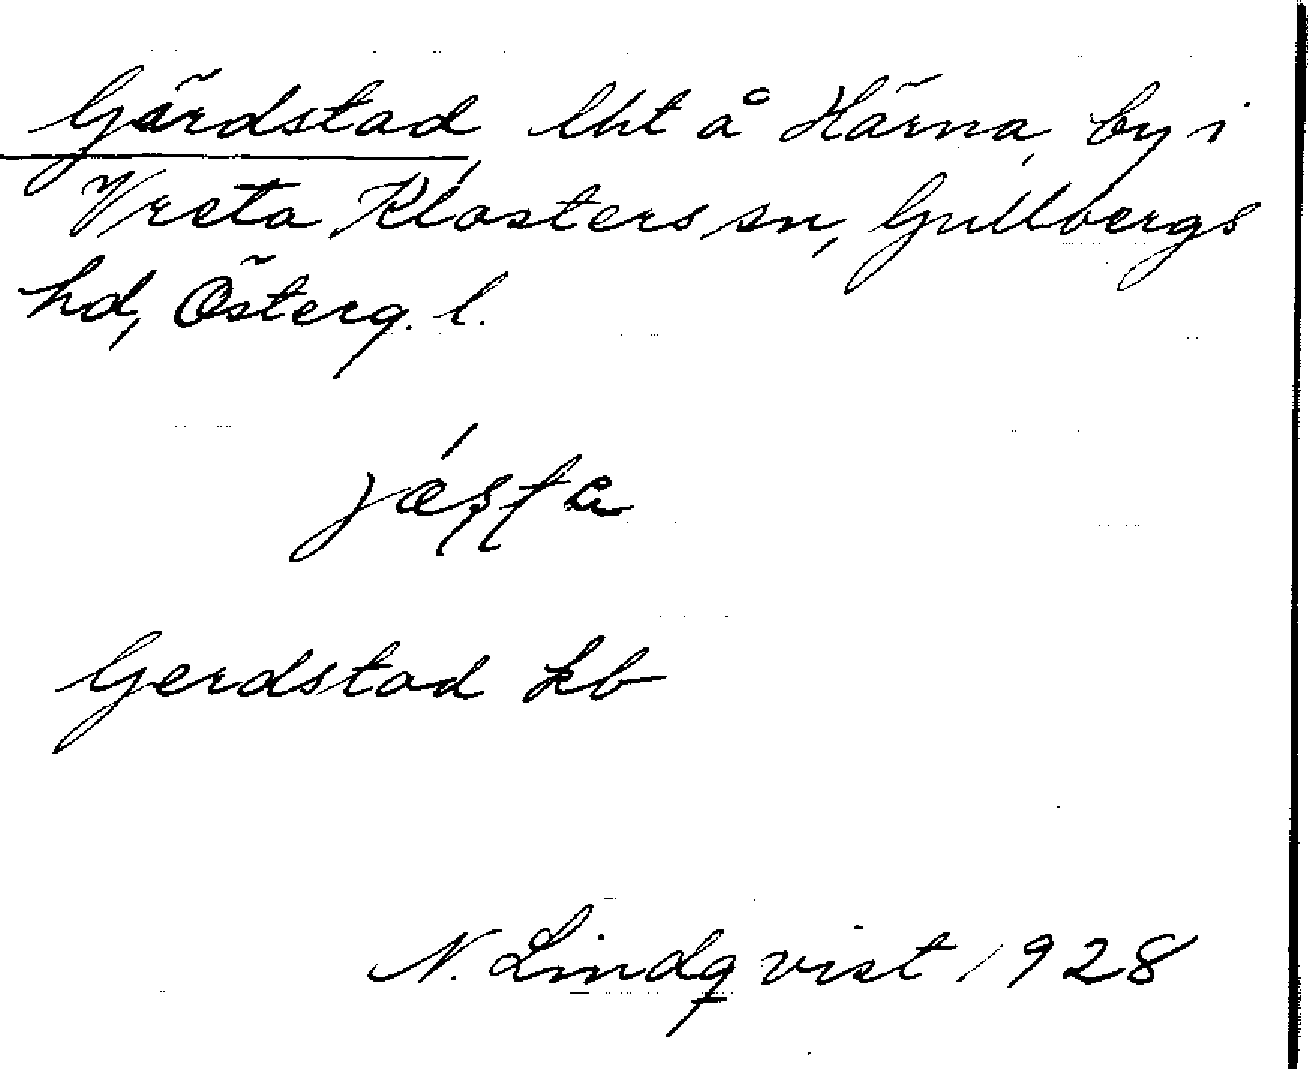 Gärdstad, lht å Härna, by i
Vreta Klosters sn, Gullbergs
hd, Österg. l.
Gerdstad kb
N. Lindqvist 1928